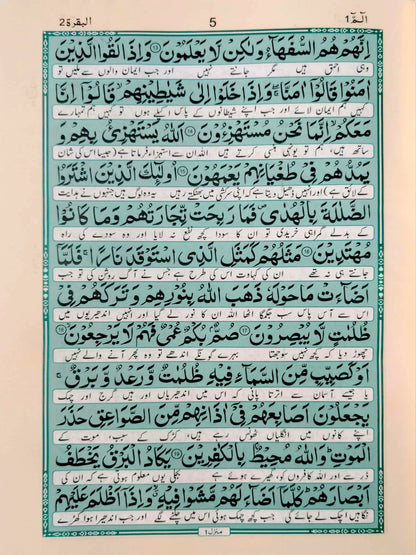 الٓمّٓ ۱ 5 البقرة ۲
اِنَّهُمْ هُمُ السُّفَهَآءُ وَلٰكِنْ لَّا يَعْلَمُوْنَ ⑬ وَاِذَا لَقُوا الَّذِيْنَ
وہی احمق ہیں مگر جانتے نہیں اور جب ایمان والوں سے ملیں تو
اٰمَنُوْا قَالُوْٓا اٰمَنَّا ۖ وَاِذَا خَلَوْا اِلٰى شَيٰطِيْنِهِمْ قَالُوْٓا اِنَّا
کہیں ہم ایمان لائے اور جب اپنے شیطانوں کے پاس اکیلے ہوں تو کہیں ہم تمہارے
مَعَكُمْ اِنَّمَا نَحْنُ مُسْتَهْزِءُوْنَ ⑭ اَللّٰهُ يَسْتَهْزِئُ بِهِمْ وَ
ساتھ ہیں، ہم تو یونہی ہنسی کرتے ہیں اللہ ان سے استہزاء فرماتا ہے (جیسا اس کی شان
يَمُدُّهُمْ فِيْ طُغْيَانِهِمْ يَعْمَهُوْنَ ⑮ اُولٰٓئِكَ الَّذِيْنَ اشْتَرَوُا
کے لائق ہے) اور انہیں ڈھیل دیتا ہے کہ اپنی سرکشی میں بھٹکتے رہیں یہ وہ لوگ ہیں جنہوں نے ہدایت
الضَّلٰلَةَ بِالْهُدٰى ۠ فَمَا رَبِحَتْ تِّجَارَتُهُمْ وَمَا كَانُوْا
کے بدلے گمراہی خریدی تو ان کا سودا کچھ نفع نہ لایا اور وہ سودے کی راہ
مُهْتَدِيْنَ ⑯ مَثَلُهُمْ كَمَثَلِ الَّذِى اسْتَوْقَدَ نَارًا ۚ فَلَمَّآ
جانتے ہی نہ تھے ان کی کہاوت اس کی طرح ہے جس نے آگ روشن کی تو جب
اَضَآءَتْ مَا حَوْلَهٗ ذَهَبَ اللّٰهُ بِنُوْرِهِمْ وَتَرَكَهُمْ فِيْ
اس سے آس پاس سب جگمگا اٹھا اللہ ان کا نور لے گیا اور انہیں اندھیریوں میں
ظُلُمٰتٍ لَّا يُبْصِرُوْنَ ⑰ صُمٌّۢ بُكْمٌ عُمْيٌ فَهُمْ لَا يَرْجِعُوْنَ ⑱
چھوڑ دیا کہ کچھ نہیں سوجھتا بہرے گونگے اندھے تو وہ پھر آنے والے نہیں
اَوْ كَصَيِّبٍ مِّنَ السَّمَآءِ فِيْهِ ظُلُمٰتٌ وَّرَعْدٌ وَّبَرْقٌ ۚ
یا جیسے آسمان سے اترتا پانی کہ اس میں اندھیریاں ہیں اور گرج اور چمک
يَجْعَلُوْنَ اَصَابِعَهُمْ فِيْٓ اٰذَانِهِمْ مِّنَ الصَّوَاعِقِ حَذَرَ
اپنے کانوں میں انگلیاں ٹھونس رہے ہیں، کڑک کے سبب، موت کے
الْمَوْتِ ؕ وَاللّٰهُ مُحِيْطٌۢ بِالْكٰفِرِيْنَ ⑲ يَكَادُ الْبَرْقُ يَخْطَفُ
ڈر سے اور اللہ کافروں کو، گھیرے ہوئے ہے بجلی یوں معلوم ہوتی ہے کہ ان کی
اَبْصَارَهُمْ ؕ كُلَّمَآ اَضَآءَ لَهُمْ مَّشَوْا فِيْهِ ۙ وَاِذَآ اَظْلَمَ عَلَيْهِمْ
نگاہیں اچک لے جائے گی جب کچھ چمک ہوئی اس میں چلنے لگے اور جب اندھیرا ہوا کھڑے
منزل ۱